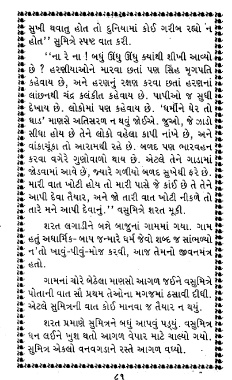 સુખી થવાતુ હોત તો દુનિયામાં કોઈ ગરીબ રહ્યો ન
હોત" સુમિત્રે સ્પષ્ટ વાત કરી.
"ના રે ના ! બધું ઊંધુ ઊંધું ક્યાંથી શીખી આવ્યો
છે ? હરણીયાઓને મારવા છતાં પણ સિંહ મૃગપતિ
કહેવાય છે, અને હરણનું રક્ષણ કરવા છતાં હરણનાં
લાંછનથી ચંદ્ર કલંકીત કહેવાય છે. પાપીઓ જ સુખી
દેખાય છે. લોકોમાં પણ કહેવાય છે. 'ધર્મીને ઘેર તો
ધાડ' માણસે અતિસરળ ન થવું જોઈએ. જુઓ, જે ઝાડો
સીધા હોય છે તેને લોકો વહેલા કાપી નાંખે છે, અને
વાંકાચૂંકા તો આરામથી રહે છે. બળદ પણ ભારવહન
કરવા વગેરે ગુણોવાળો થાય છે. એટલે તેને ગાડામાં
જોડવામાં આવે છે, જ્યારે ગળીયો બળદ સુખેથી ફરે છે.
મારી વાત ખોટી હોય તો મારી પાસે જે કાંઈ છે તે તને
આપી દેવા તૈયાર, અને જો તારી વાત ખોટી નીકળે તો
તારે મને આપી દેવાનું." વસુમિત્રે શરત મૂકી.
શરત લગાડીને બંને બાજુનાં ગામમાં ગયા. ગામ
હતું અધાર્મિક- બાપ જન્મારે ધર્મ જેવો શબ્દ જ સાંભળ્યો
ન'તો ખાવું-પીવું-મોજ કરવી, આજ તેમનો જીવનમંત્ર
હતો.
ગામનાં ચોરે બેઠેલા માણસો આગળ જઈને વસુમિત્રે
પોતાની વાત સૌ પ્રથમ તેઓના મગજમાં ઠસાવી દીધી.
એટલે સુમિત્રની વાત કોઈ માનવા જ તૈયાર ન થયું.
શરત પ્રમાણે સુમિત્રને બધું આપવું પડ્યું. વસુમિત્ર
ધન લઈને ખુશ થતો આગળ વેપાર માટે ચાલ્યો ગયો.
સુમિત્ર એકલો વનવગડાને રસ્તે આગળ વધ્યો.
૮૧